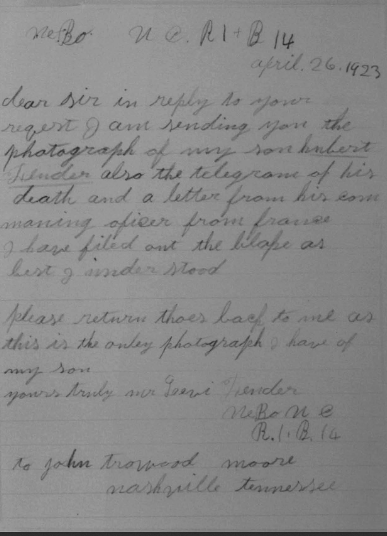 NeBo N C. R 1 + B 14
april. 26. 1923
dear sir in reply to your
reqest I am sending you the
photograph of my son hubert
Fender also the telegram of his
death and a letter from his com
maning oficer from france
I have filed out the blape as
best I under stood
please return thoes back to me as
this is the onley photograph I have of
my son
yours truly mr Fender
NeBo N C
R. 1. B. 14
to john trowood moore
nashville tennessee